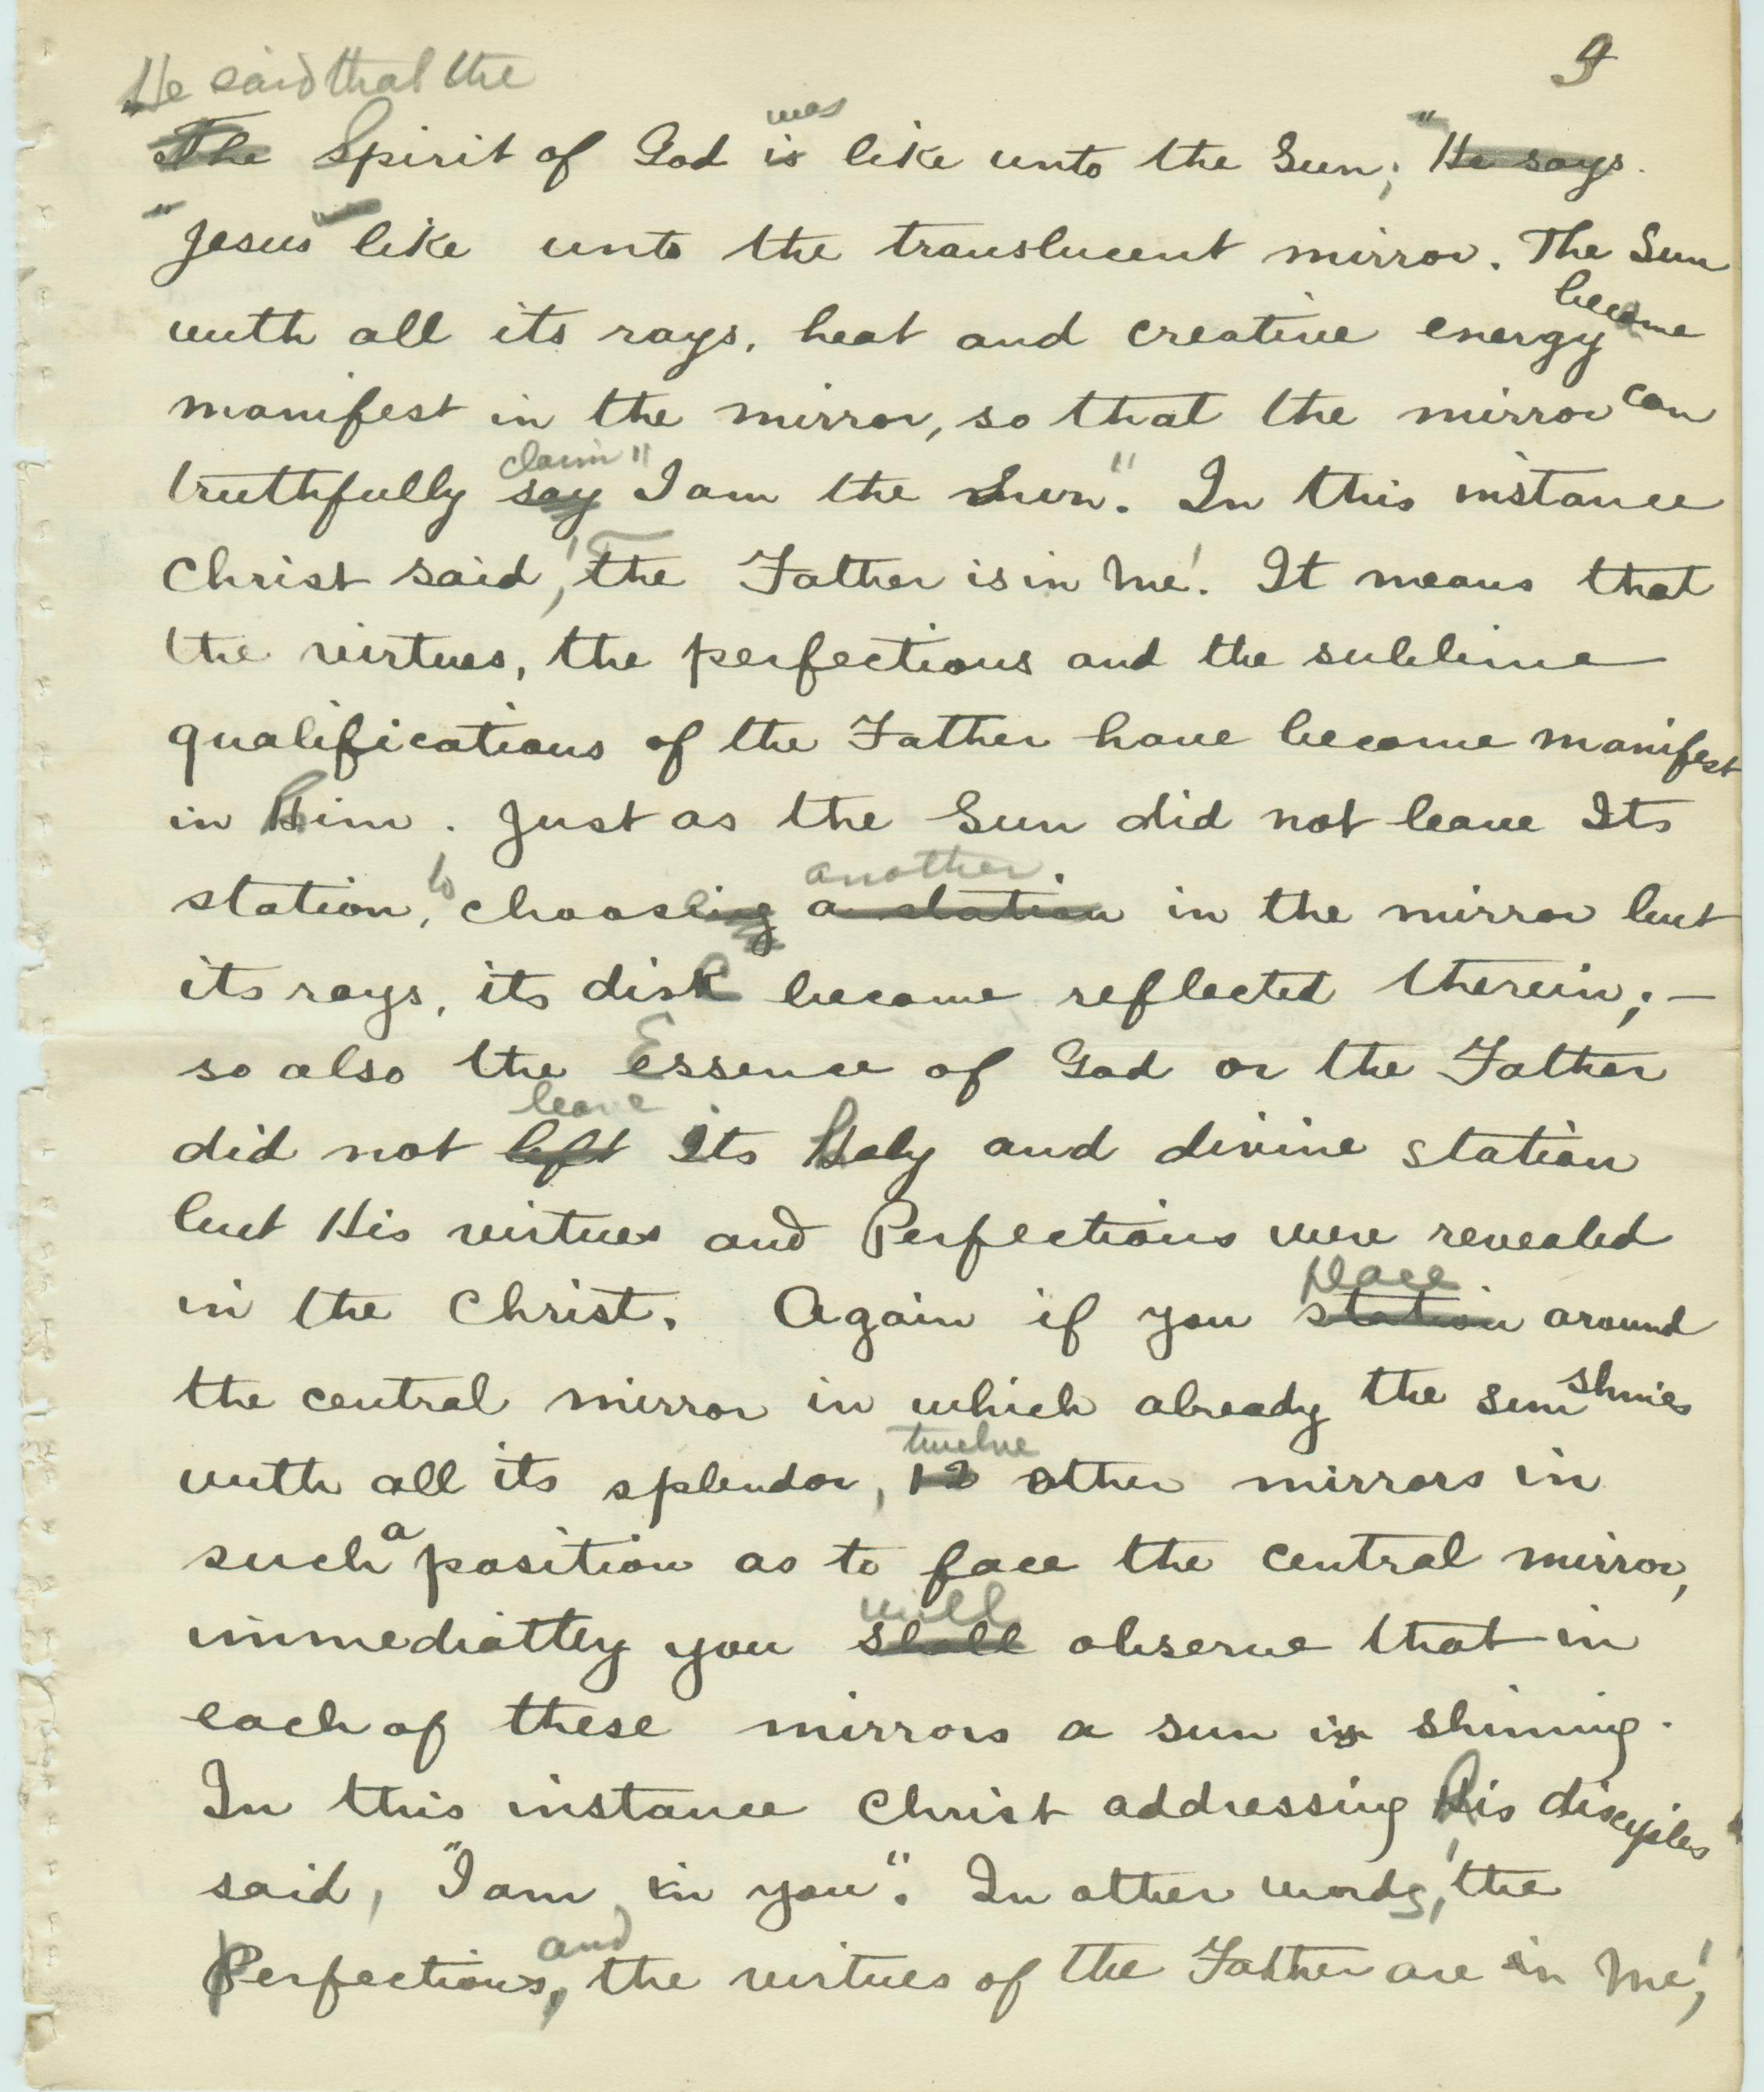 9
He said that the
The Spirit of God is was like unto the Sun; "He says.
"Jesus like unto the translucent mirror. The Sun
with all its rays, heat and creative energy become
manifest in the mirror, so that the mirror can
truthfully say claim "I am the Sun". In this instance
Christ said, 'The Father is in Me'. It means that
the virtues, the perfections and the sublime
qualifications of the Father have become manifest
in him. Just as the Sun did not leave Its
station, to choosing a station another in the mirror but
its rays, its disk became reflected therein;—
so also the Essence of God or the Father
did not left leave Its holy and divine station
but His virtues and Perfections were revealed
in the Christ. Again if you station place around
the central mirror in which already the sun shines
with all its splendor, 12 twelve other mirrors in
such a position as to face the central mirror,
immediattly you shall will observe that in
each of these mirrors a sun is shining.
In this instance Christ addressing his discyples
said, "I am in you". In other words, 'the
perfections, and the virtues of the Father are in Me',